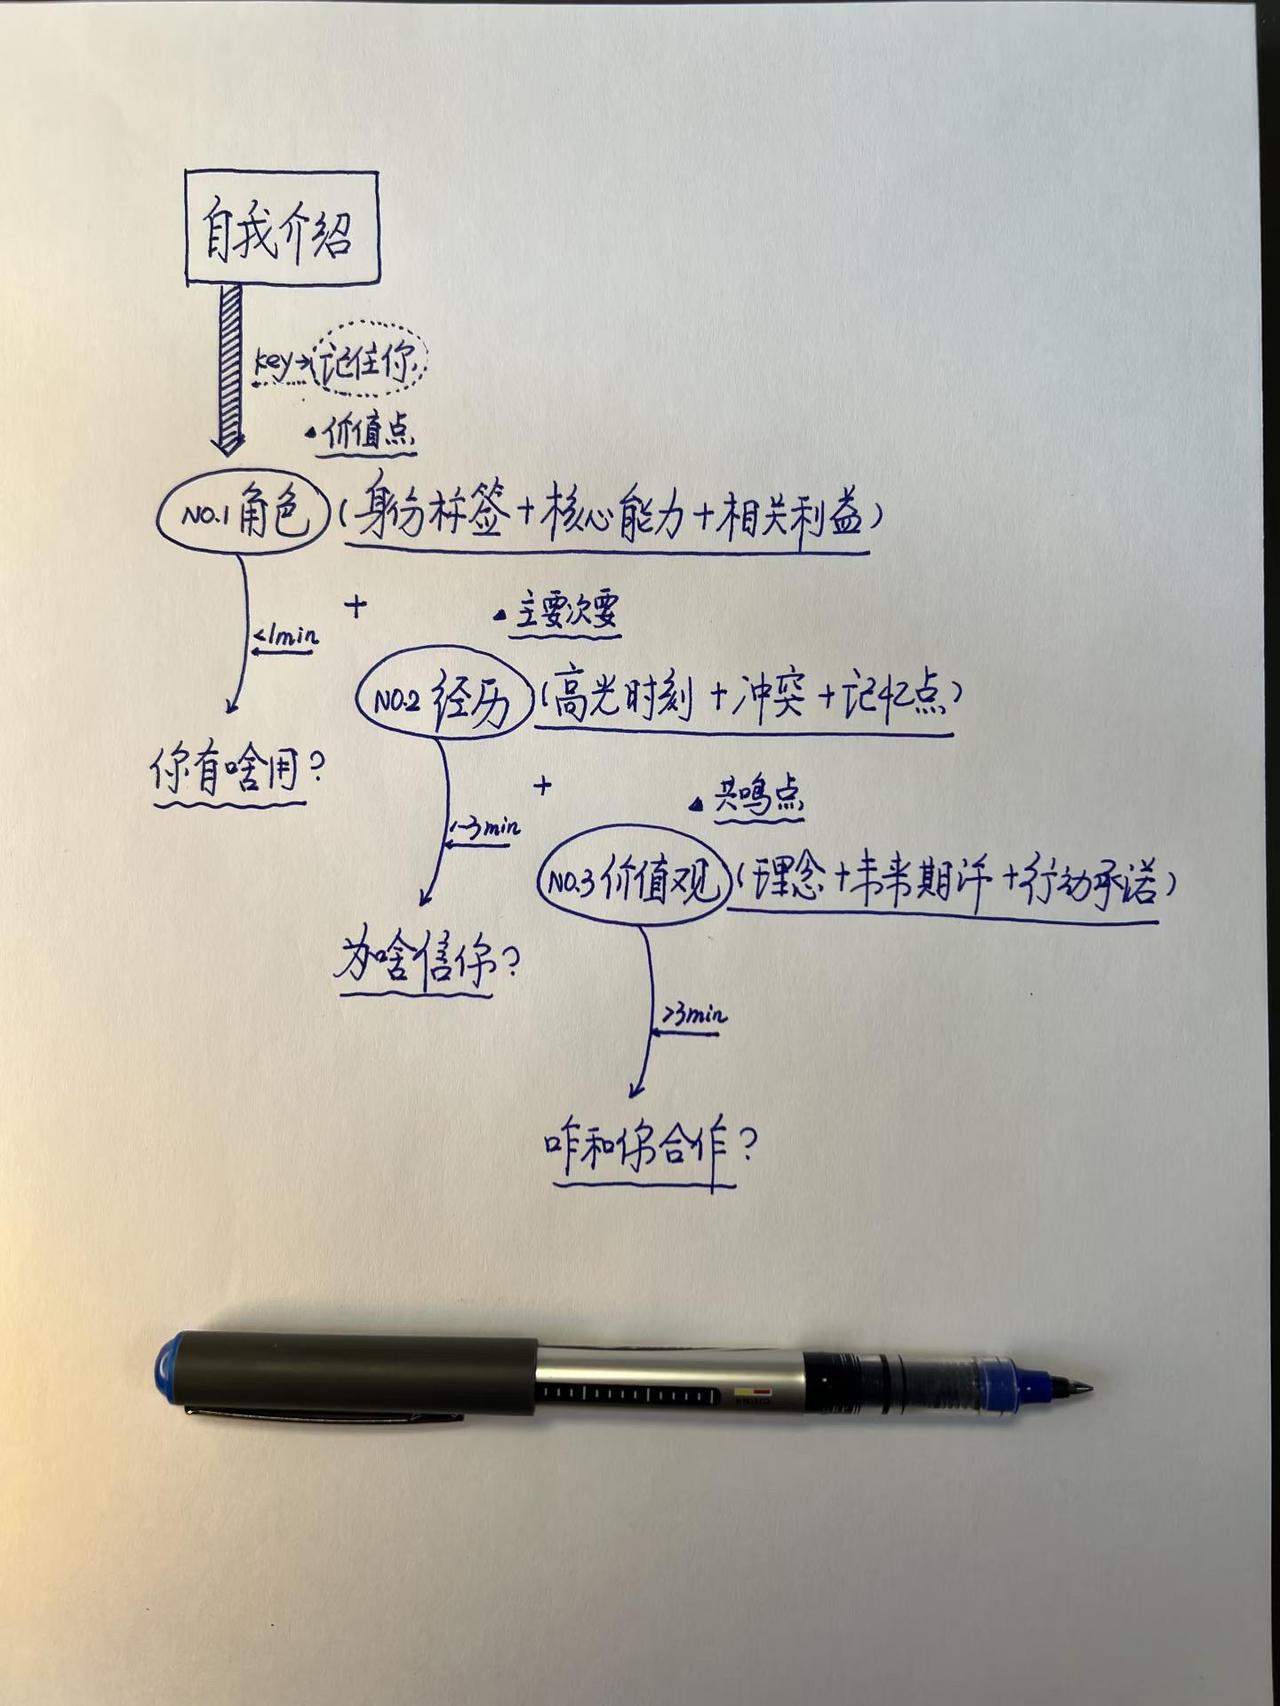 自我介绍
key→记住你
·价值点
NO.1 角色 (身份标签+核心能力+相关利益)
+
·主要次要
<1min
NO.2 经历 (高光时刻+冲突+记忆点)
你有啥用?
+
·共鸣点
1-3min
NO.3 价值观 (理念+未来期许+行动承诺)
为啥信你?
>3min
咋和你合作?
CHINA